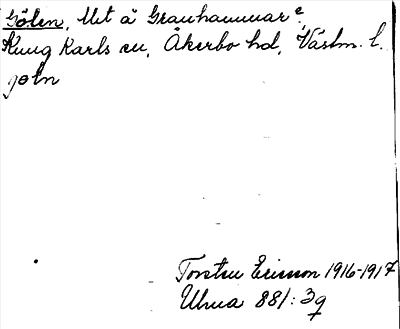 Gölen, Utt å Granhammar e.
Kung Karls sn, Åkerbo hd, Västm. l.
jøln
Torsten Ericsson 1916-1917
Uhua 881:3q